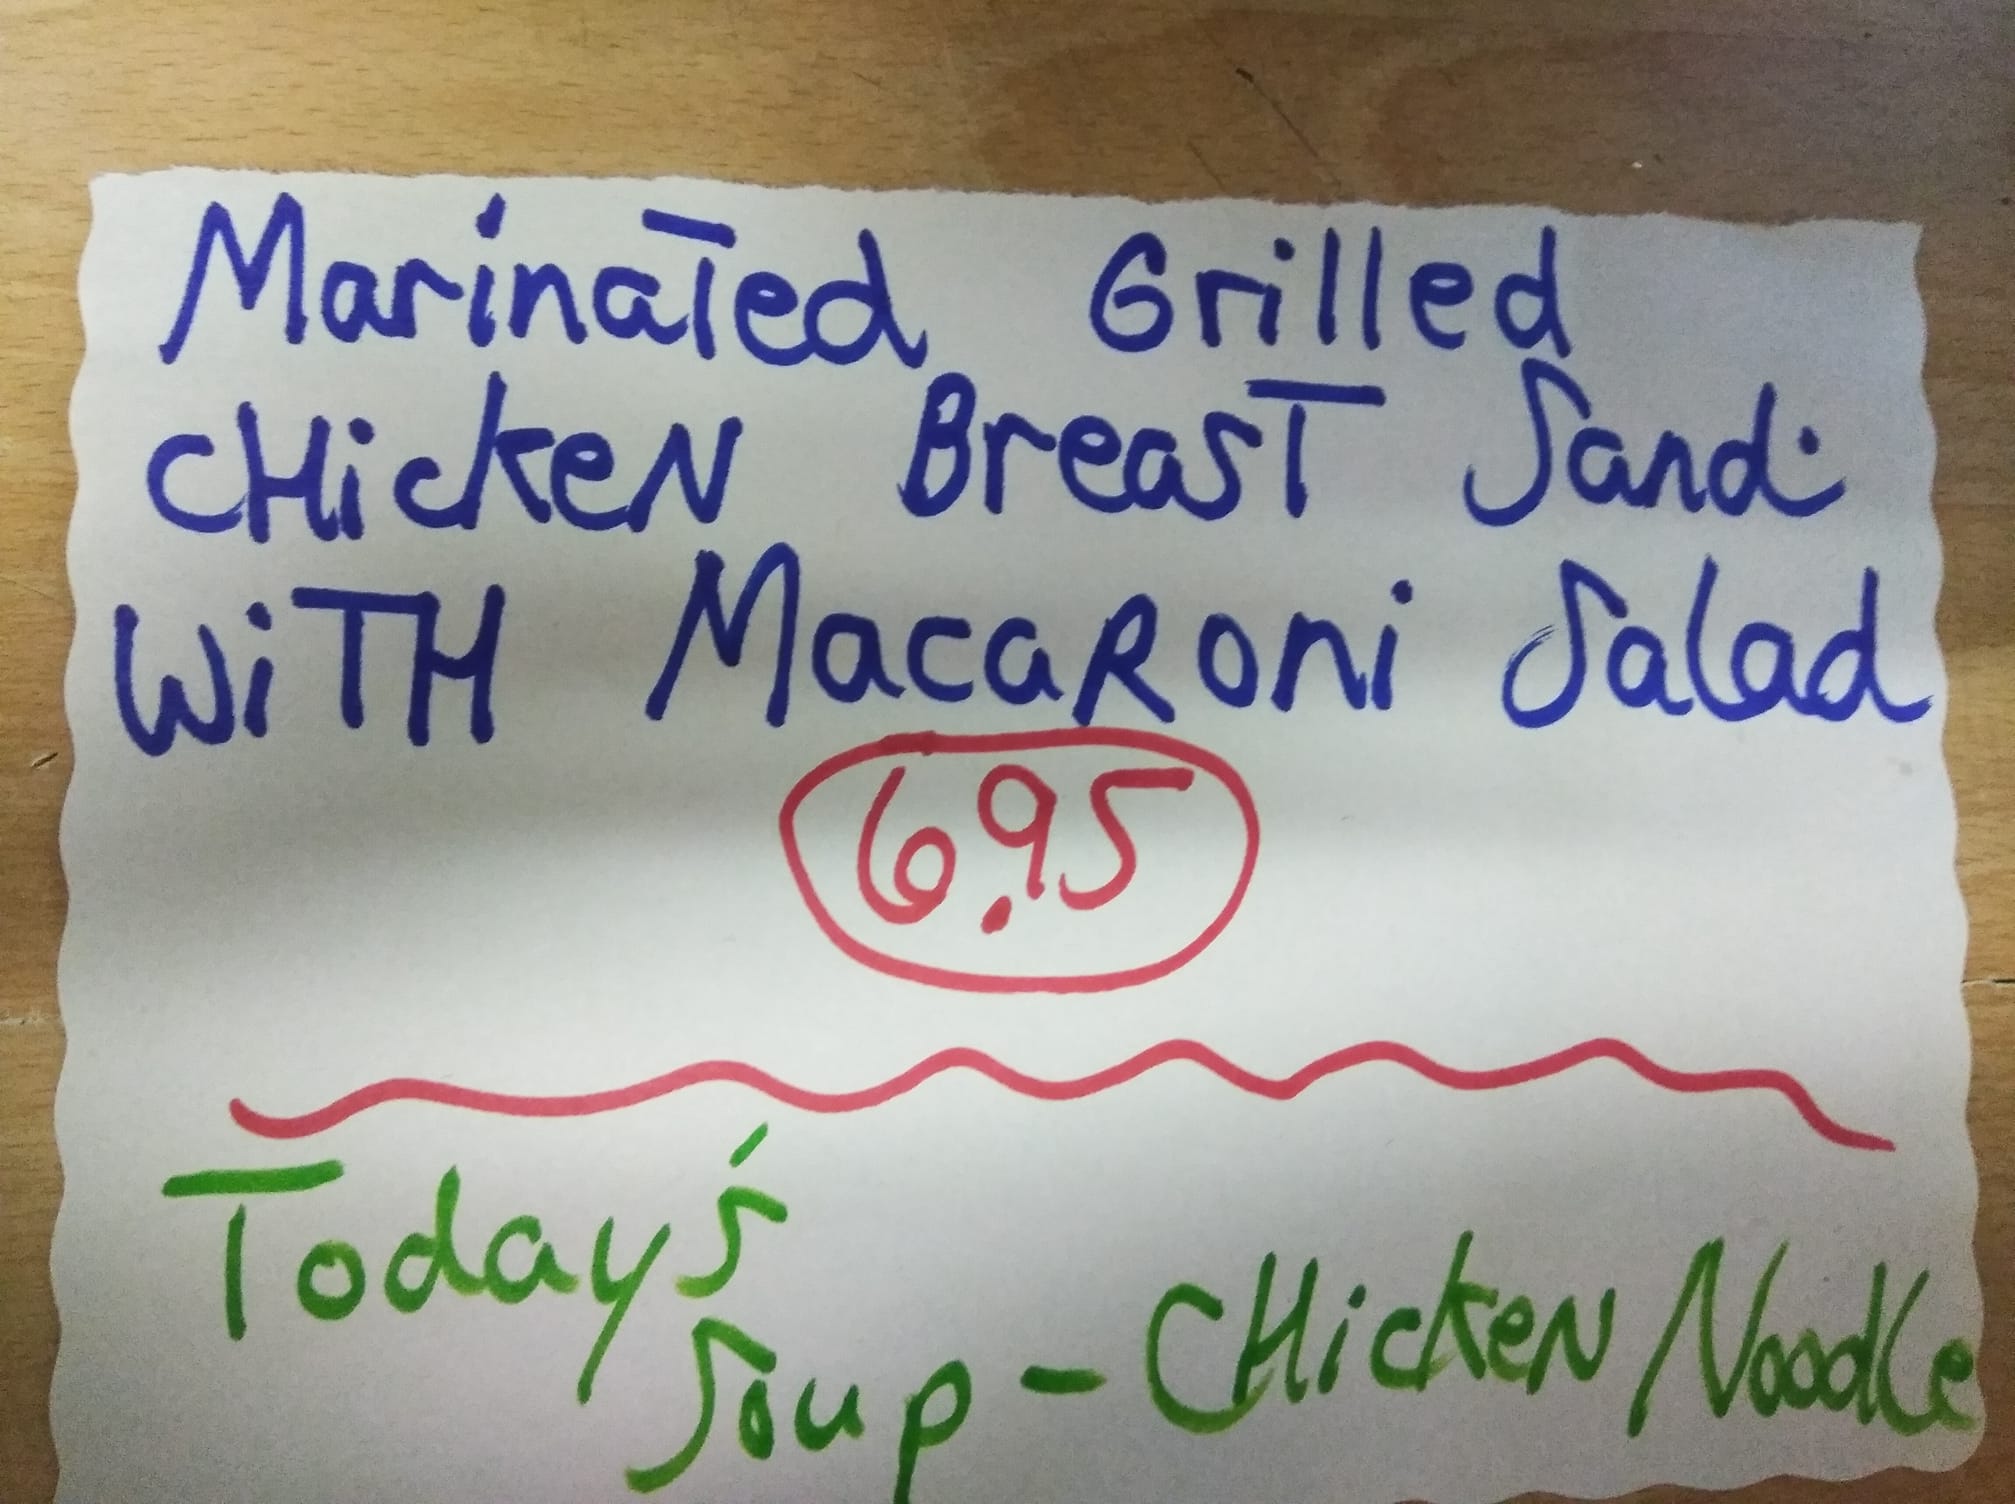 Marinated Grilled
CHicKeN Breast Sand.
WiTH MacaRoni Salad
6.95
Today's
Soup - CHicKeN Noodle